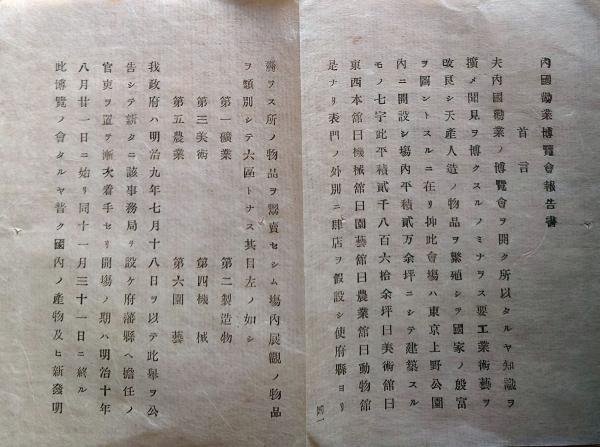 內國勸業博覽會報告書
首言
夫內國勸業ノ博覽會ヲ開ク所以タルヤ知識ヲ
擴メ聞見ヲ博クスルノミナラス要工業術藝ヲ
改良シ天產人造ノ物品ヲ繁殖シヲ國家ノ殷富
ヲ圖シトスルニ在リ抑此會場ハ東京上野公園
內ニ開設シ場內平積貳万余坪ニシテ建築スル
モノ七宇此平積貳千八百六拾余坪曰美術館曰
東西本館曰機械館曰園藝館曰農業館曰動物館
是ナリ表門ノ外別ニ肆店ヲ假設シ使府縣ヨリ
四一
齎ヲス所ノ物品ヲ鬻賣セシム場內展觀ノ物品
ヲ類別シテ六區トナス其目左ノ如シ
第一礦業 第二製造物
第三美術 第四機械
第五農業 第六園藝
我政府ハ明治九年七月十八日ヲ以テ此舉ヲ公
告シテ新タニ該事務局ヲ設ケ府藩縣ヘ擔任ノ
官吏ヲ置ヲ漸次着手セリ開場ノ期ハ明治十年
八月廿一日ニ始リ同十一月三十一日ニ終ル
此博覽ノ會タルヤ普ク國內ノ產物及ヒ新發明